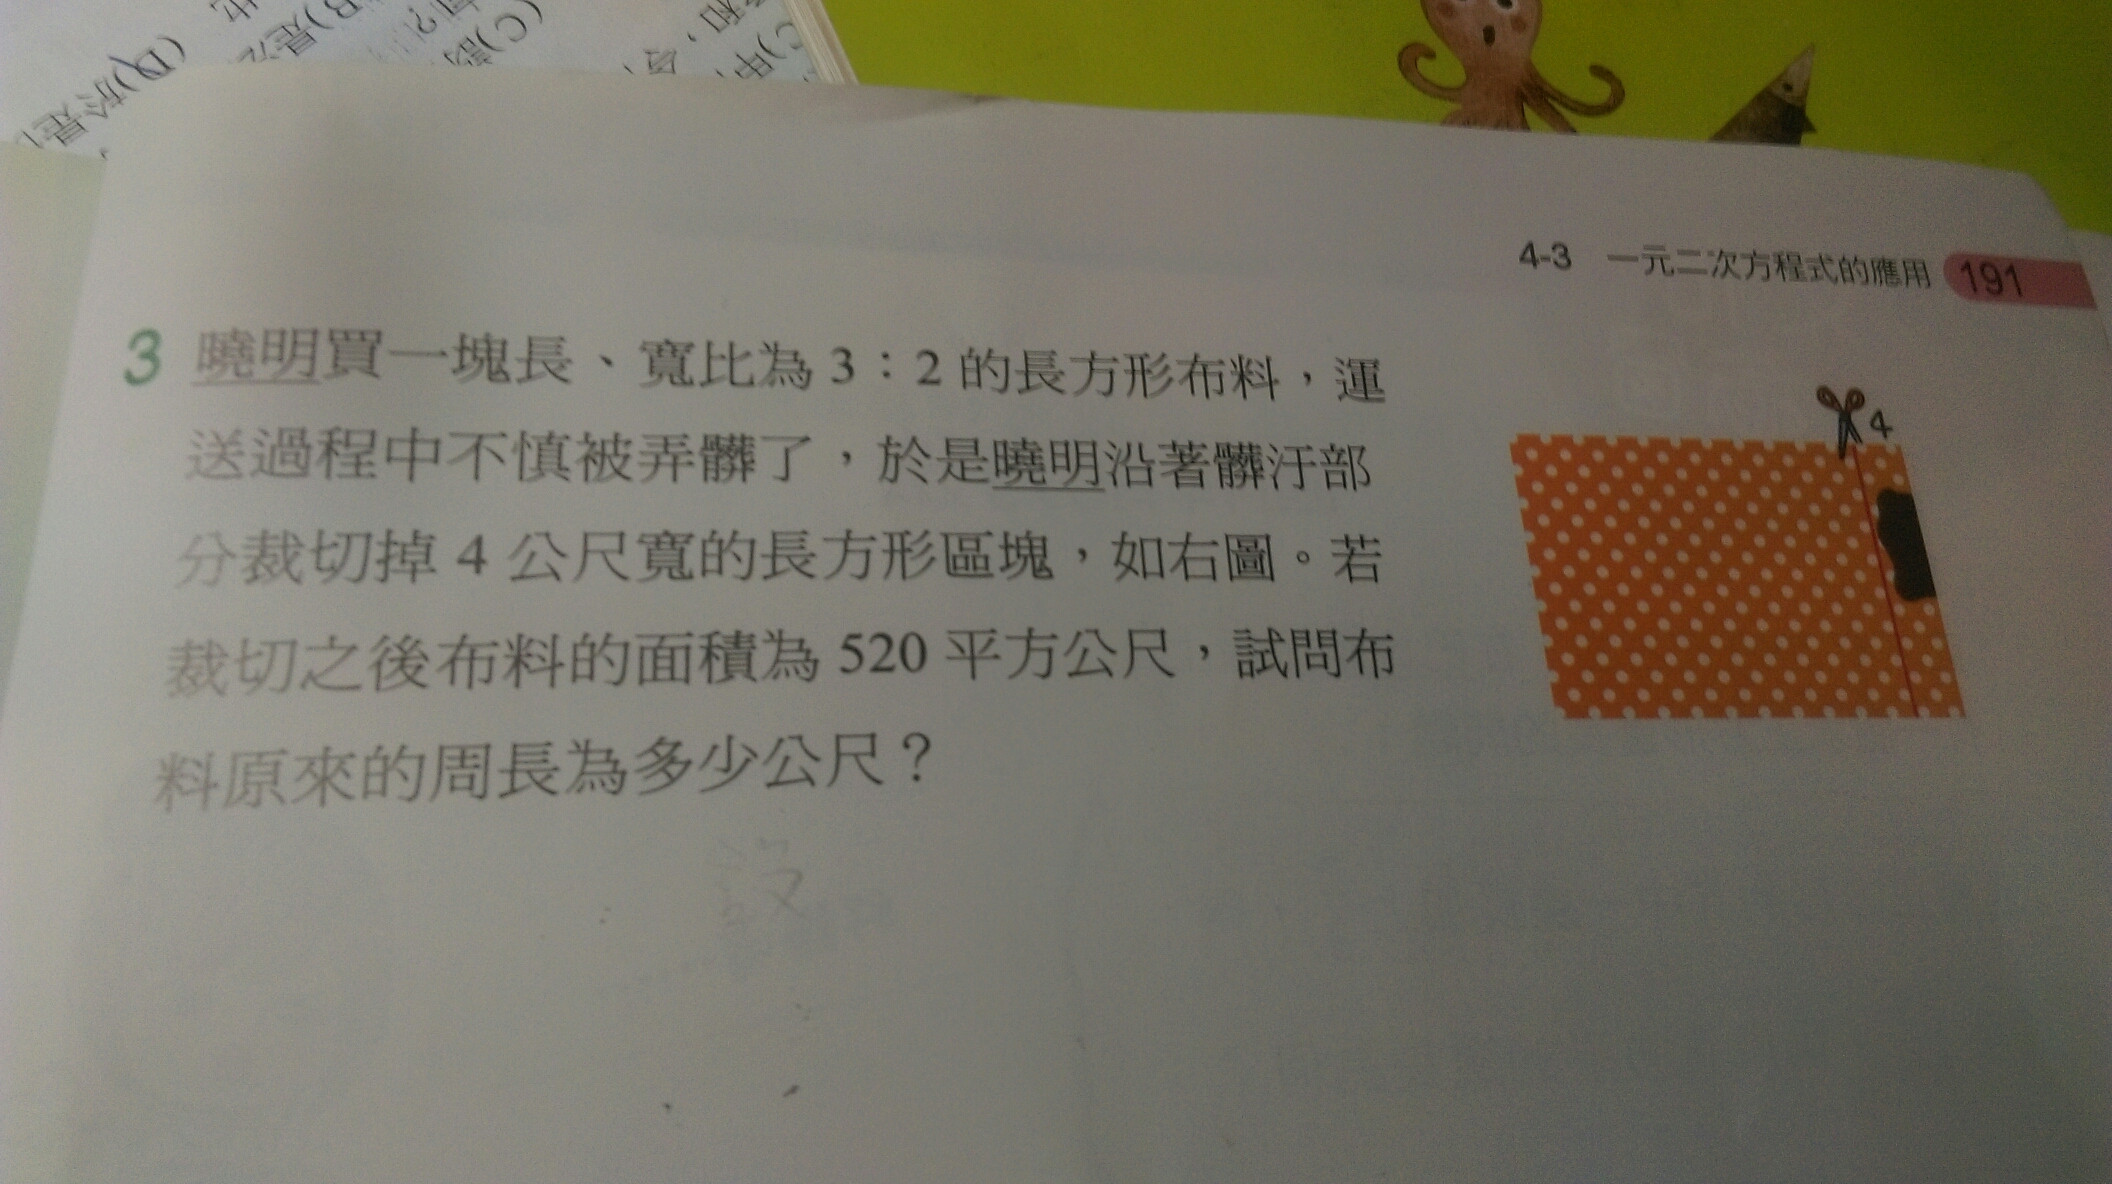 4-3 一元二次方程式的應用 191
3 曉明買一塊長、寬比為 3：2 的長方形布料，運
送過程中不慎被弄髒了，於是曉明沿著髒汙部
分裁切掉 4 公尺寬的長方形區塊，如右圖。若
裁切之後布料的面積為 520 平方公尺，試問布
料原來的周長為多少公尺？
4
設